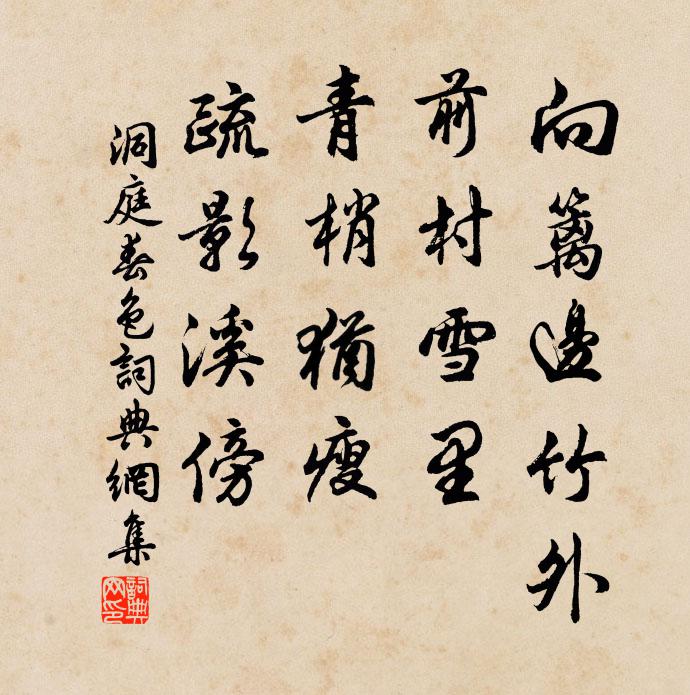 向籬邊竹外
前村雪里
青梢猶瘦
疏影溪傍
洞庭春色詞典網集
詞典网印